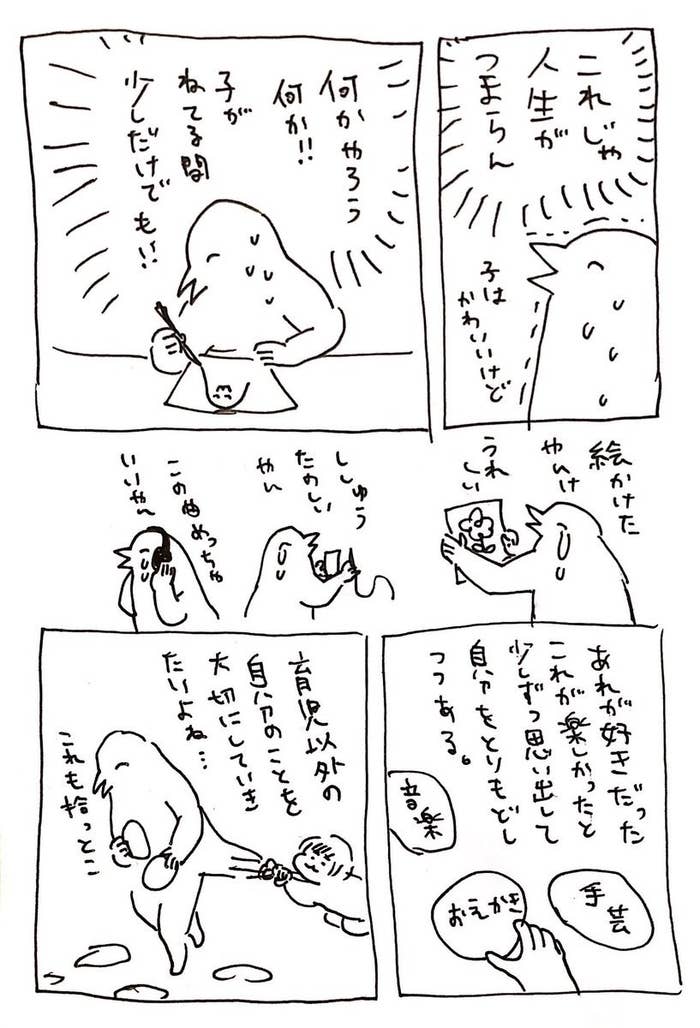 これじゃ
人生が
つまらん
子は
かわいいけど
何かやろう
何か!!
子が
ねてる間
少しだけでも!!
絵かけた
やんけ
うれ
しい
ししゅう
たのしい
やん
この曲めっちゃ
いいやん
あれが好きだった
これが楽しかったと
少しずつ思い出して
自分をとりもどし
つつある。
音楽
手芸
おえかき
育児以外の
自分のことを
大切にしていき
たいよね…
これも拾っとこ